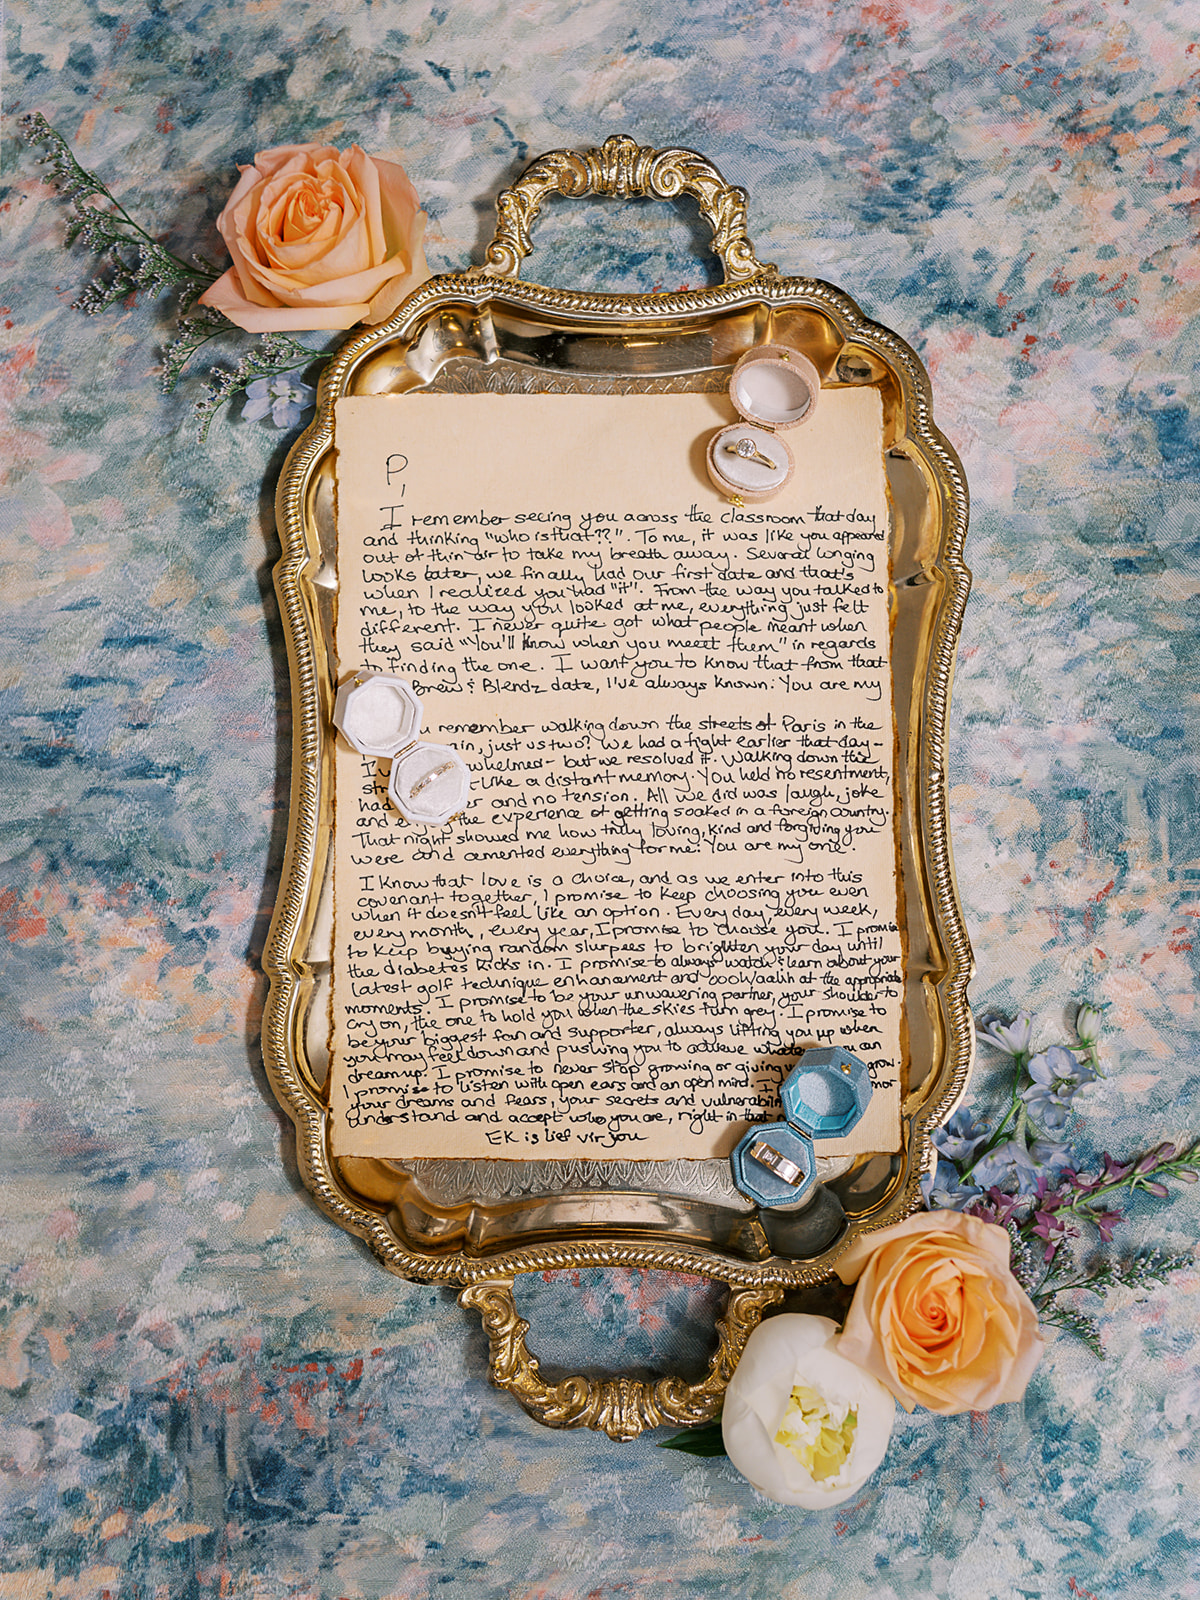 P,
I remember seeing you across the classroom that day
and thinking "who is that??". To me, it was like you appeared
out of thin air to take my breath away. Several longing
looks later, we finally had our first date and that's
when I realized you had "it". From the way you talked to
me, to the way you looked at me, everything just felt
different. I never quite got what people meant when
they said "You'll know when you meet them" in regards
to finding the one. I want you to know that from that
Brew & Blendz date, I've always known: You are my
u remember walking down the streets of Paris in the
ain, just us two? We had a fight earlier that day-
I whelmed- but we resolved it. Walking down the
str -Like a distant memory. You held no resentment,
had er and no tension. All we did was laugh, joke
and enjoy the experience of getting soaked in a foreign country.
That night showed me how truly loving, kind and forgiving you
were and cemented everything for me: You are my one.
I know that love is a choice, and as we enter into this
covenant together, I promise to keep choosing you even
when it doesn't feel like an option. Every day, every week,
every month, every year, I promise to choose you. I promise
to keep buying random slurpees to brighten your day until
the diabetes kicks in. I promise to always watch & learn about your
latest golf technique enhancement and oooh/aahh at the appropriate
moments. I promise to be your unwavering partner, your shoulder to
cry on, the one to hold you when the skies turn grey. I promise to
be your biggest fan and supporter, always lifting you up when
you may feel down and pushing you to achieve whate you can
dream up. I promise to never stop growing or giving grow.
I promise to listen with open ears and an open mind. I
your dreams and fears, your secrets and vulnerabili
understand and accept who you are, right in that
EK is lief vir jou